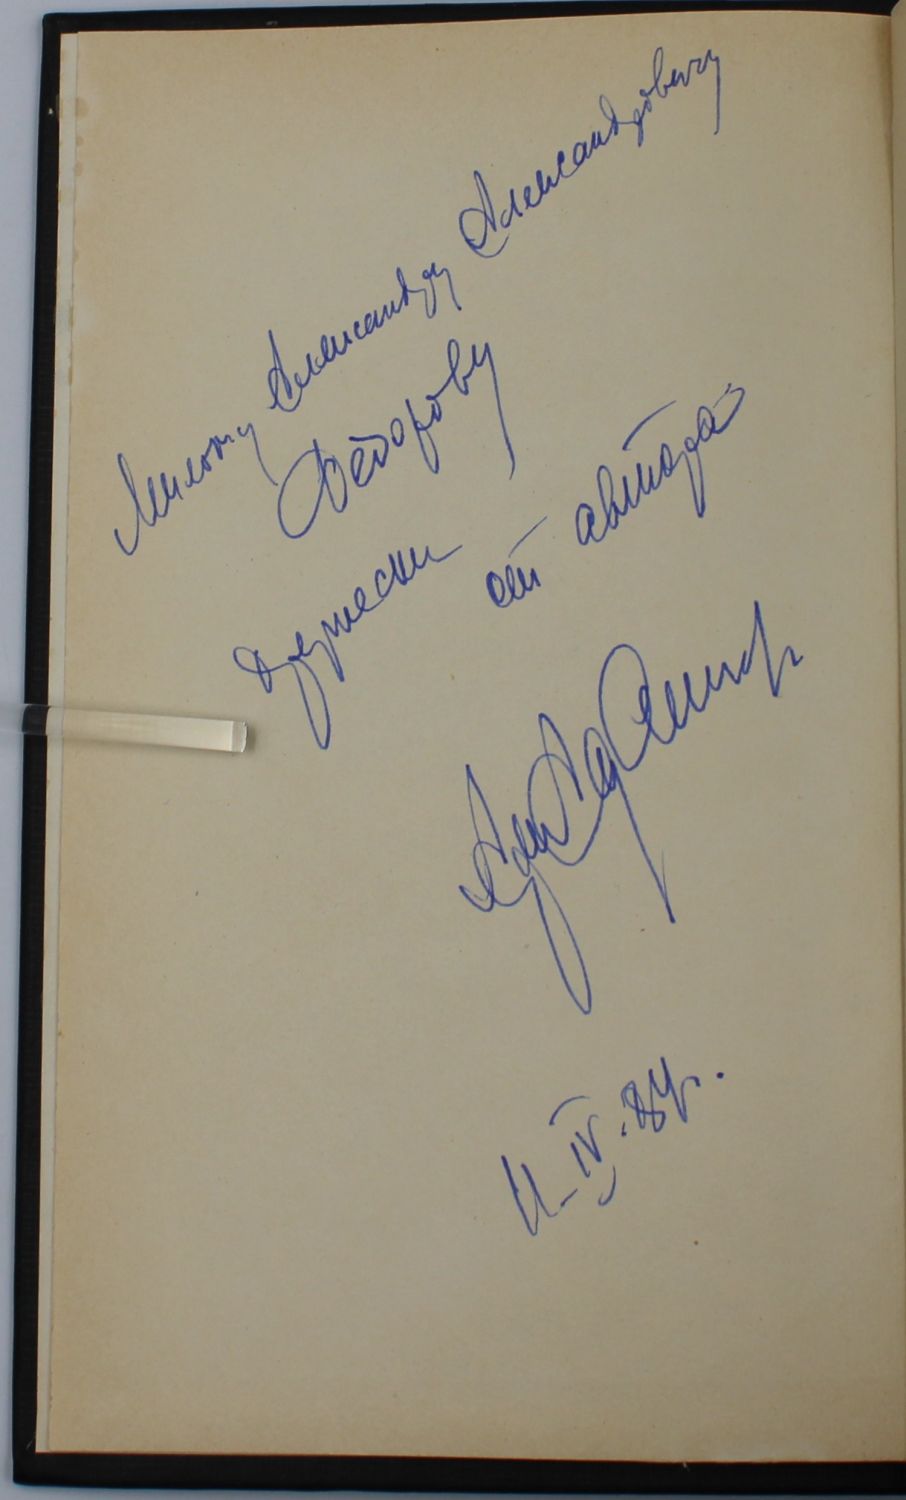 Милому Александру Александровичу
Фёдорову
дружески
от автора
11-IV-84г.